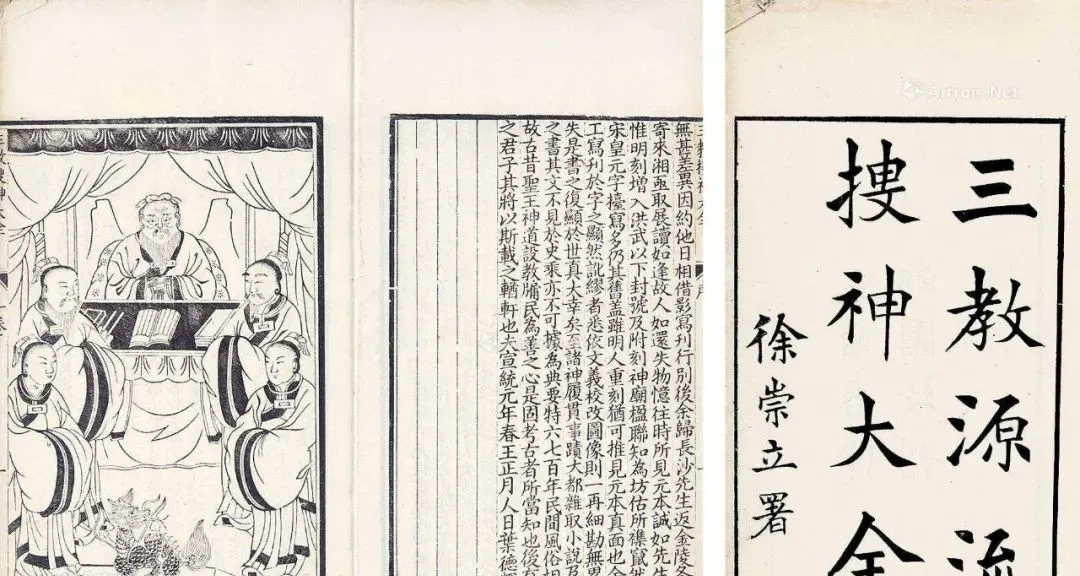 三教源流
搜神大全
徐崇立署
三教搜神大全 序
無甚差異因約他日相借影寫刊行別後余歸長沙先生返金陵冬
寄來湘亟取展讀如逢故人如還失物憶往時所見元本誠如先生
惟明刻增入洪武以下封號及附刻神廟楹聯知為坊估所襍竄然
宋皇元字擡寫多仍其舊蓋雖明人重刻猶可推見元本真面也今
工寫刊於字之顯然訛繆者悉依文義校改圖像則一再細勘無異
失是書之復顯於世真大幸矣至諸神履貫事蹟大都雜取小說及
之書其文不見於史乘亦不可據為典要特六七百年民間風俗相
故古昔聖王神道設教牖民為善之心是固考古者所當知也後有
之君子其將以斯載之輶軒也夫宣統元年春王正月人日葉德輝
三教搜神大全
Artron.Net